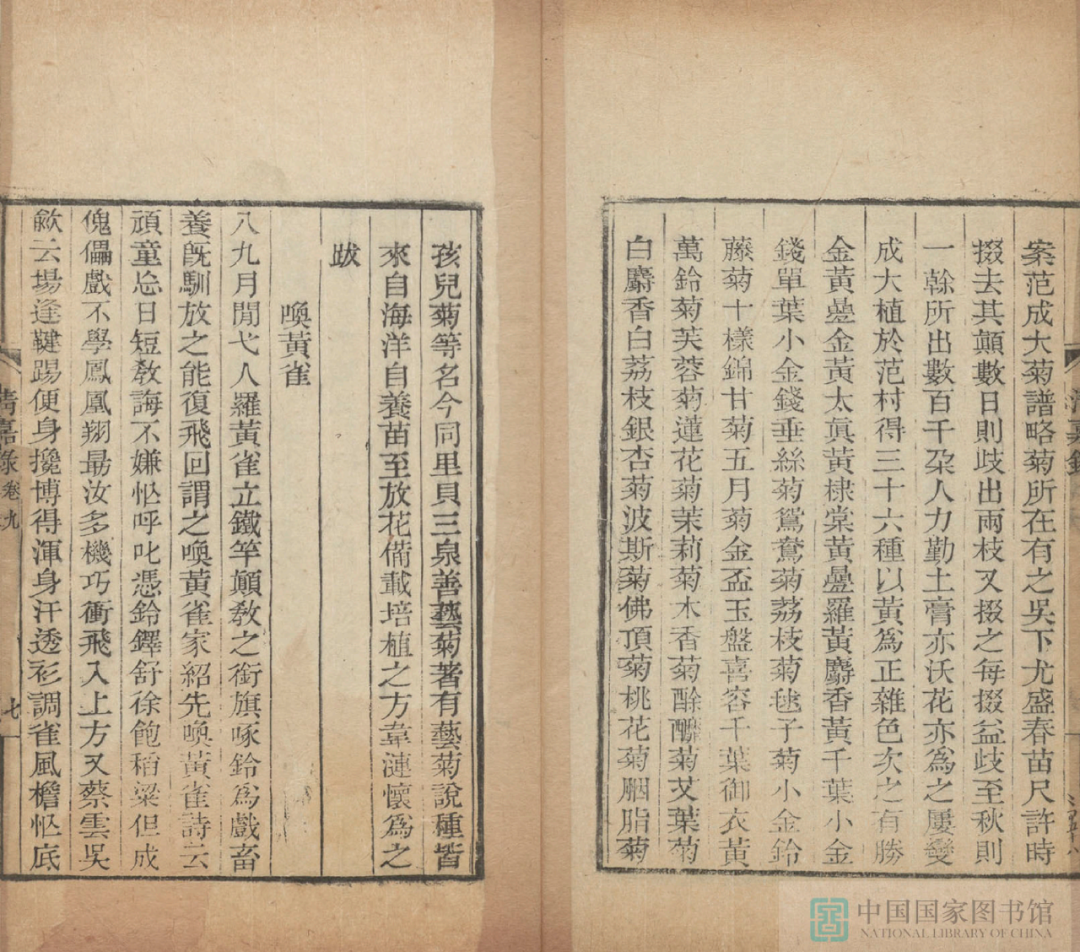 案范成大菊譜略菊所在有之吳下尤盛春苗尺許時
掇去其顛數日則歧出兩枝又掇之每掇益歧至秋則
一榦所出數百千朶人力勤土膏亦沃花亦為之屢變
成大植於范村得三十六種以黃為正雜色次之有勝
金黃疊金黃太眞黃棣棠黃疊羅黃麝香黃千葉小金
錢單葉小金錢垂絲菊鴛鴦菊荔枝菊毬子菊小金鈴
藤菊十樣錦甘菊五月菊金盃玉盤喜容千葉御衣黃
萬鈴菊芙蓉菊蓮花菊茉莉菊木香菊酴醾菊艾葉菊
白麝香白荔枝銀杏菊波斯菊佛頂菊桃花菊胭脂菊
孩兒菊等名今同里貝三泉善藝菊著有藝菊說種皆
來自海洋自養苗至放花備載培植之方韋漣懷為之
跋
喚黃雀
八九月閒弋人羅黃雀立鐵竿顛敎之銜旗啄鈴為戲畜
養旣馴放之能復飛回謂之喚黃雀家紹先喚黃雀詩云
頑童忘日短敎誨不嫌忙呼叱憑鈴鐸舒徐飽稻粱但成
傀儡戲不學鳳凰翔最汝多機巧衝飛入上方又蔡雲吳
歈云場逢鞬踢便身攙博得渾身汗透衫調雀風檐忙底
清嘉錄 卷九
七
中国国家图书馆
NATIONAL LIBRARY OF CHINA